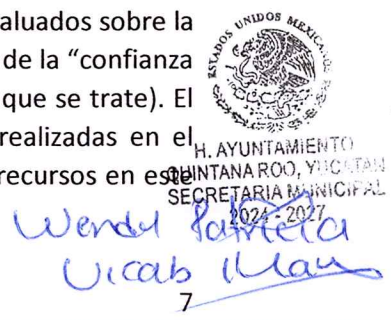 aluados sobre la
de la “confianza
que se trate). El
realizadas en el
recursos en este
ESTADOS UNIDOS MEXICANOS
H. AYUNTAMIENTO
QUINTANA ROO, YUCATAN
SECRETARIA MUNICIPAL
2024 - 2027
Wendy Patricia
Uicab
7